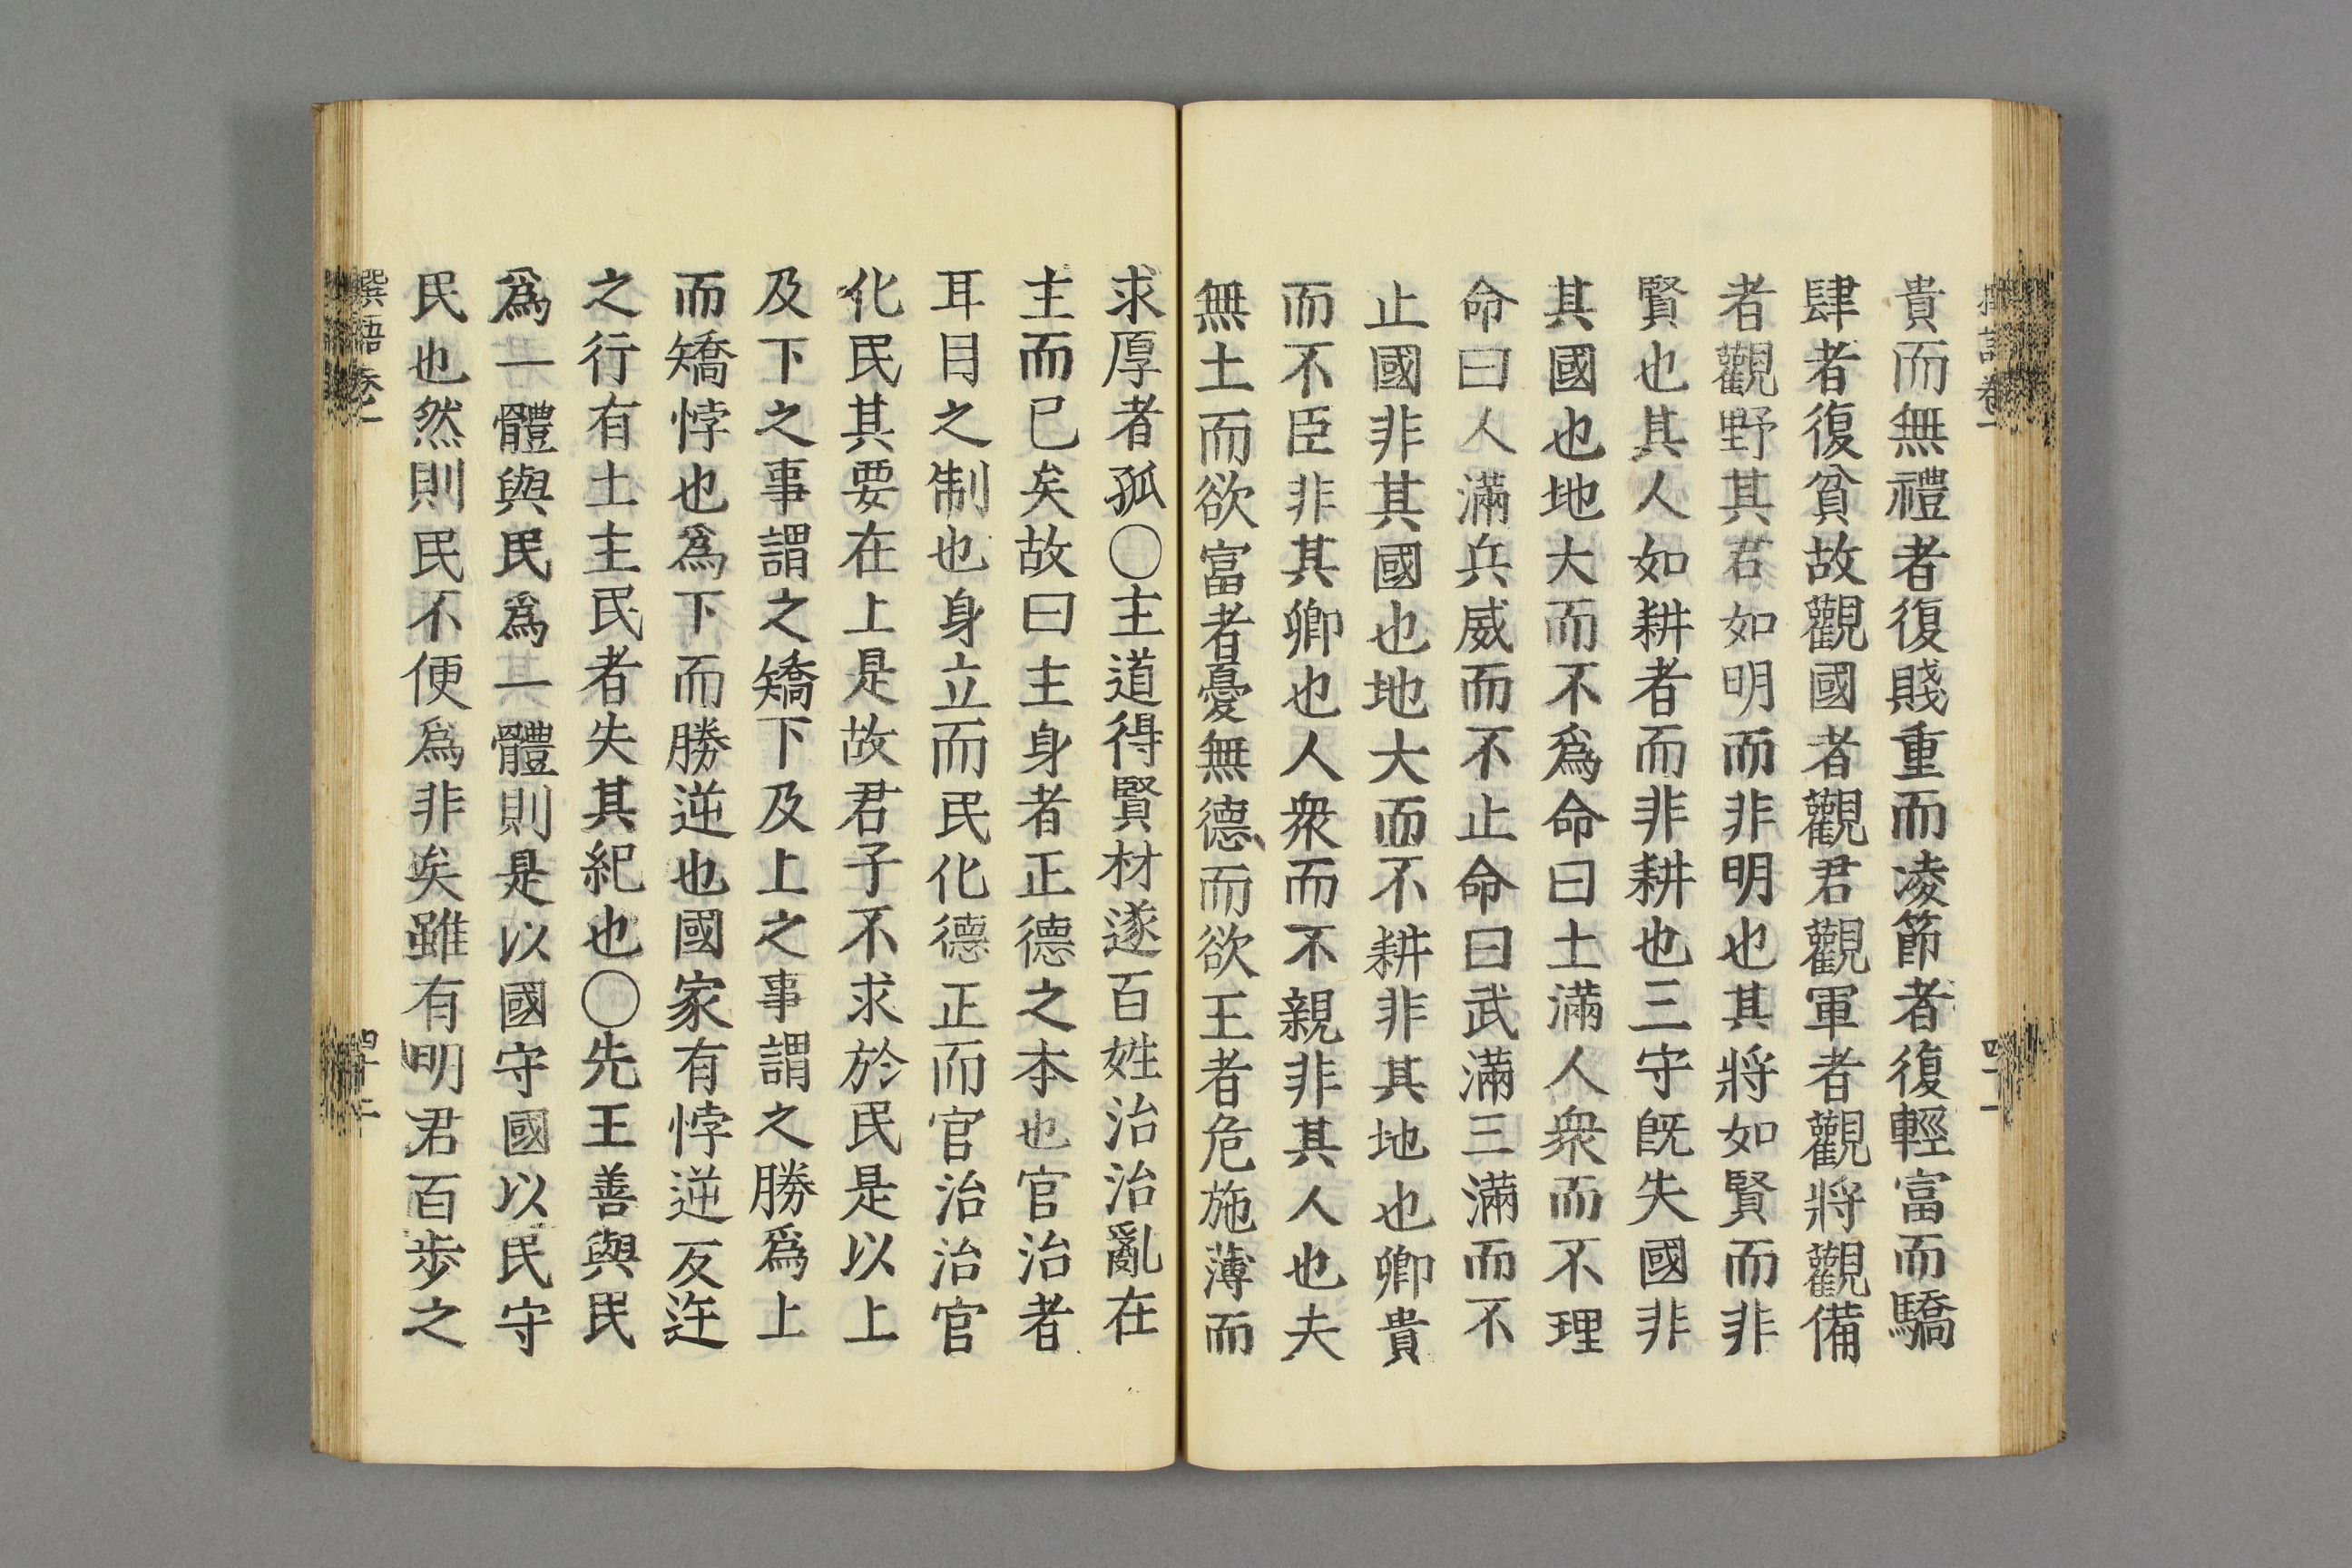 撰語卷一
四十一
貴而無禮者復賤重而凌節者復輕富而驕
肆者復貧故觀國者觀君觀軍者觀將觀備
者觀野其君如明而非明也其將如賢而非
賢也其人如耕者而非耕也三守既失國非
其國也地大而不爲命曰土滿人衆而不理
命曰人滿兵威而不止命曰武滿三滿而不
止國非其國也地大而不耕非其地也卿貴
而不臣非其卿也人衆而不親非其人也夫
無土而欲富者憂無德而欲王者危施薄而
求厚者孤〇主道得賢材遂百姓治治亂在
主而已矣故曰主身者正德之本也官治者
耳目之制也身立而民化德正而官治治官
化民其要在上是故君子不求於民是以上
及下之事謂之矯下及上之事謂之勝爲上
而矯悖也爲下而勝逆也國家有悖逆反迕
之行有土主民者失其紀也〇先王善與民
爲一體與民爲一體則是以國守國以民守
民也然則民不便爲非矣雖有明君百歩之
撰語卷一
四十二